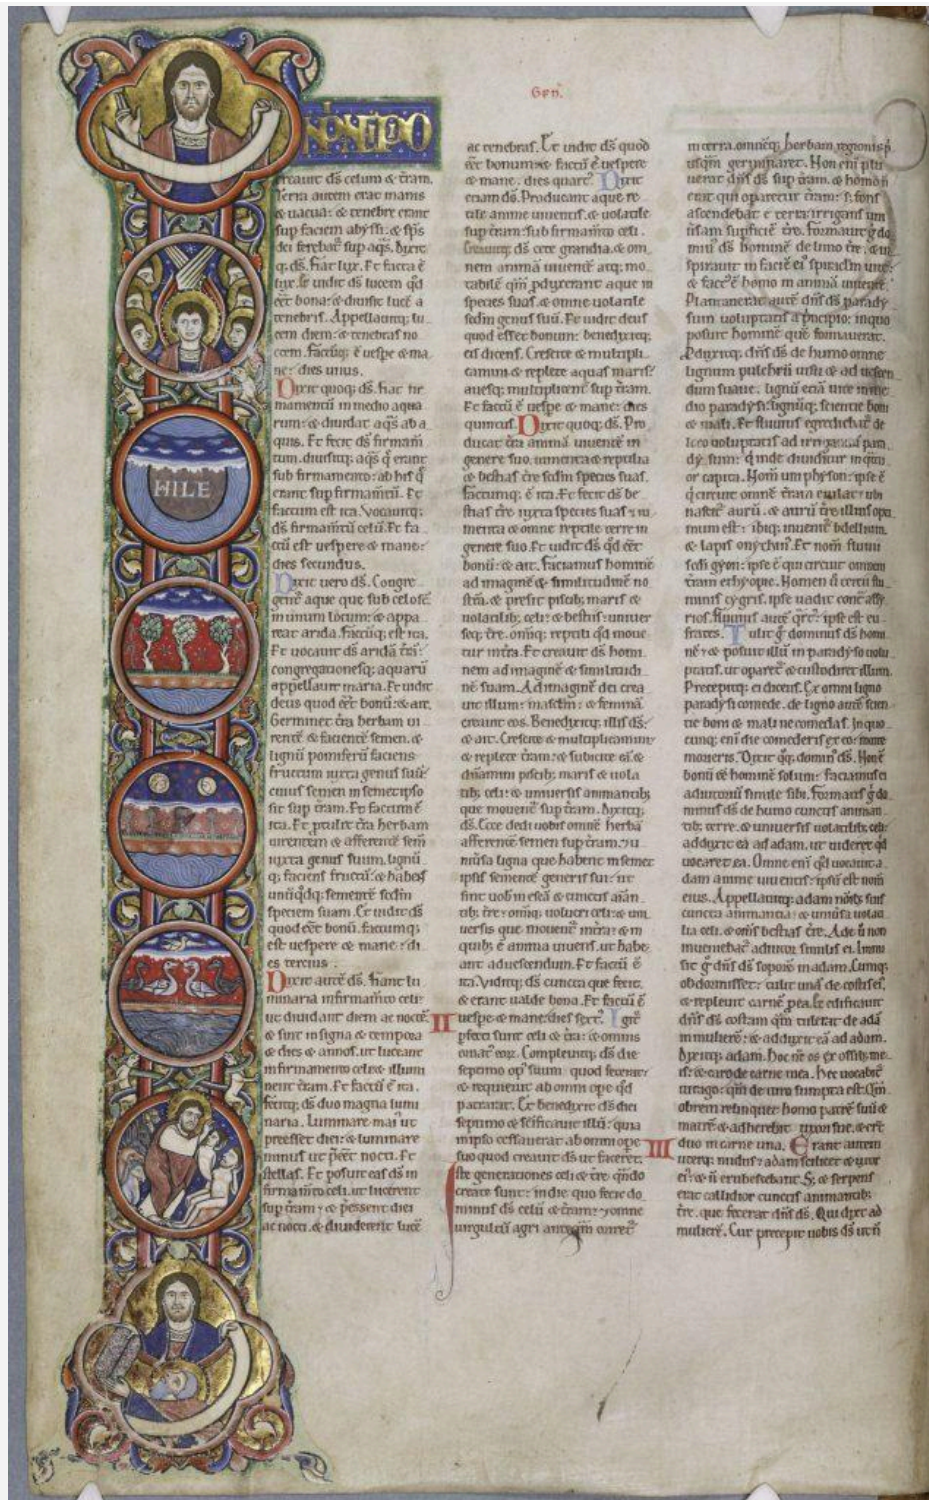 Gen̄.
IN PRINCIPIO
HILE
creauit ds̄ celum & t̄ram.
Terra autem erat inanis
& uacua: & tenebre erant
sup faciem abyssi: & sp̄s
dei ferebat̄ sup aq̄s. Dixitq;
q. ds̄. fiat lux. Et facta ē
lux. Et uidit ds̄ lucem qd̄
eēt bona: & diuisit lucē a
tenebris. Appellauitq; lu
cem diem: & tenebras no
ctem. factūq; ē uespe & ma
ne: dies unus.
Dixit quoq; ds̄. fiat fir
mamentū in medio aqua
rum: & diuidat aq̄s ab a
quis. Et fecit ds̄ firmam̄
tum. diuisitq; aq̄s q̄ erant
sub firmamento: ab his q̄
erant sup firmam̄tū. Et
factum est ita. Vocauitq;
ds̄ firmam̄tū celū. Et fa
ctū est uespere & mane:
dies secundus.
Dixit uero ds̄. Congre
gent̄ aque que sub celo sn̄t
in unum locum: & appa
reat arida. factūq; est ita.
Et uocauit ds̄ aridā t̄rā:
congregationesq; aquarū
appellauit maria. Et uidit
deus quod eēt bonū: & ait.
Germinet t̄ra herbam ui
rentē & facientē semen. &
lignū pomiferū faciens
fructum iuxta genus suū:
cuius semen in semetipso
sit sup t̄ram. Et factum ē
ita. Et ptulit t̄ra herbam
uirentem & afferentē sem̄
iuxta genus suum. lignū
q; faciens fructū: & habēs
unūqdq; sementē scdm̄
speciem suam. Et uidit ds̄
quod eēt bonū. factumq;
est uespere & mane: di
es tercius.
Dixit autē ds̄. fiant lu
minaria in firmam̄to celi:
ut diuidant diem ac noctē.
& sint in signa & tempora
& dies & annos. ut luceant
in firmamento celi & illumi
nent t̄ram. Et factū ē ita.
fecitq; ds̄ duo magna lumi
naria. Luminare mai' ut
preesset diei: & luminare
minus ut p̄eēt nocti. Et
stellas. Et posuit eas ds̄ in
firmam̄to celi. ut lucerent
sup t̄ram: & p̄essent diei
ac nocti. & diuiderent lucē
ac tenebras. Et uidit ds̄ quod
eēt bonum: & factū ē uespere
& mane. dies quart'. Dixit
etiam ds̄. Producant aque re
tile anime uiuentis. & uolatile
sup t̄ram: sub firmam̄to celi.
Creauitq; ds̄ cete grandia. & om
nem animā uiuentē atq; mo
tabilē qm̄ pduxerant aque in
species suas. & omne uolatile
scdm̄ genus suū. Et uidit deus
quod esset bonum: benedixitq;
eis dicens. Crescite & multipli
camini & replete aquas maris:
auesq; multiplicent̄ sup t̄ram.
Et factū ē uespe & mane: dies
quintus. Dixit quoq; ds̄. Pro
ducat t̄ra animā uiuentē in
genere suo. iumenta & reptilia
& bestias t̄re scdm̄ species suas.
factumq; ē ita. Et fecit ds̄ be
stias t̄re iuxta species suas & iu
menta & omne reptile terre in
genere suo. Et uidit ds̄ qd̄ eēt
bonū: & ait. faciamus hominē
ad imaginē & similitudinē no
strā. & presit piscib; maris &
uolatilib; celi: & bestiis: uniuer
seq; t̄re. omiq; reptili qd̄ moue
tur in t̄ra. Et creauit ds̄ homi
nem ad imaginē & similitudi
nē suam. Ad imaginē dei crea
uit illum: masclm̄ & feminā
creauit eos. Benedixitq; illis ds̄:
& ait. Crescite & multiplicamini
& replete t̄ram: & subicite eā &
dn̄amini piscib; maris & uola
tilib; celi: & uniuersis animantib;
que mouent̄ sup t̄ram. Dixitq;
ds̄. Ecce dedi uobis omnē herbā
afferentē semen sup t̄ram. & u
niuersa ligna que habent in semet
ipsis sementē generis sui: ut
sint uob in escā & cunctis aīan
tib; t̄re: omiq; uolucri celi: & uni
uersis que mouent̄ in t̄ra: & in
quib; ē anima uiuens. ut habe
ant ad uescendum. Et factū ē
ita. Viditq; ds̄ cuncta que fecit.
& erant ualde bona. Et factū ē
II uespe & mane: dies sext'. Igit̄
pfecti sunt celi & t̄ra: & omnis
ornat' eoꝝ. Compleuitq; ds̄ die
septimo op' suum quod fecerat:
& requieuit ab omni ope qd̄
patrarat. Et benedixit ds̄ diei
septimo & sc̄ificauit illū: quia
in ipso cessauerat ab omni ope
suo quod creauit ds̄ ut faceret.
Iste generationes celi & t̄re qn̄do
create sunt: in die quo fecit do
minus ds̄ celū & t̄ram: & omne
uirgultū agri anteqm̄ oriret̄
in terra. omneq; herbam regionis p
usqm̄ germinaret. Non enī plu
uerat dn̄s ds̄ sup t̄ram. & homo n̄
erat qui operaret̄ t̄ram: s; fons
ascendebat e terra irrigans uni
uersam supficiē t̄re. formauit g̊ do
min' ds̄ hominē de limo t̄re. & in
spirauit in faciē ei' spiraclm̄ uite:
& fact' ē homo in animā uiuentē.
Plantauerat autē dn̄s ds̄ parady
sum uoluptatis a p̄ncipio: in quo
posuit hominē quē formauerat.
Pduxitq; dn̄s ds̄ de humo omne
lignum pulchrū uisu & ad uescen
dum suaue. lignū etiā uite in me
dio paradysi: lignūq; scientie boni
& mali. Et fluuius egrediebat̄ de
loco uoluptatis ad irrigandū para
dysum: q̄ inde diuiditur in qtuor
or capita. Nom̄ uni physon: ipse ē
q̄ circuit omnē t̄ram euilat: ubi
nascit̄ aurū. & aurū t̄re illius opti
mum est: ibiq; inuenit̄ bdellium.
& lapis onychin'. Et nom̄ fluuii
scdi gyon: ipse ē qui circuit omnem
t̄ram ethyopie. Nomen ū tercii flu
minis tygris. ipse uadit cont̄ assy
rios. fluuius autē qrt': ipse est eu
frates. Tulit g̊ dominus ds̄ homi
nē: & posuit illū in paradyso uolu
ptatis. ut oparet̄ & custodiret illum.
Precepitq; ei dicens. Ex omni ligno
paradysi comede. de ligno autē scien
tie boni & mali ne comedas. In quo
cunq; enī die comederis ex eo: morte
morieris. Dixit qq; domin' ds̄. Non ē
bonū eē hominē solum: faciamus ei
adiutoriū simile sibi. formatis g̊ do
minus ds̄ de humo cunctis animan
tib; terre. & uniuersis uolatilib; celi:
adduxit ea ad adam. ut uideret qd̄
uocaret ea. Omne enī qd̄ uocauit a
dam anime uiuentis: ipsū est nom̄
eius. Appellauitq; adam noīb; suis
cuncta animantia: & uniūsa uolati
lia celi. & om̄s bestias t̄re. Ade ū non
inueniebat̄ adiutor similis ei. Immi
sit g̊ dn̄s ds̄ soporē in adam. Cumq;
obdormisset: tulit unā de costis ei'.
& repleuit carnē p ea. Et edificauit
dn̄s ds̄ costam qm̄ tulerat de adā
in mulierē: & adduxit eā ad adam.
Dixitq; adam. Hoc nc̄ os ex ossib; me
is: & caro de carne mea. Hec uocabit̄
uirago: qm̄ de uiro sumpta est. Qm̄
obrem relinquet homo patrē suū &
matrē & adherebit uxori sue. & er̄t
III duo in carne una. Erant autem
uterq; nudus: adam scilicet & uxor
ei': & n̄ erubescebant. S; & serpens
erat callidior cunctis animantib;
t̄re. que fecerat dn̄s ds̄. Qui dixit ad
mulierē. Cur precepit uobis ds̄ ut n̄